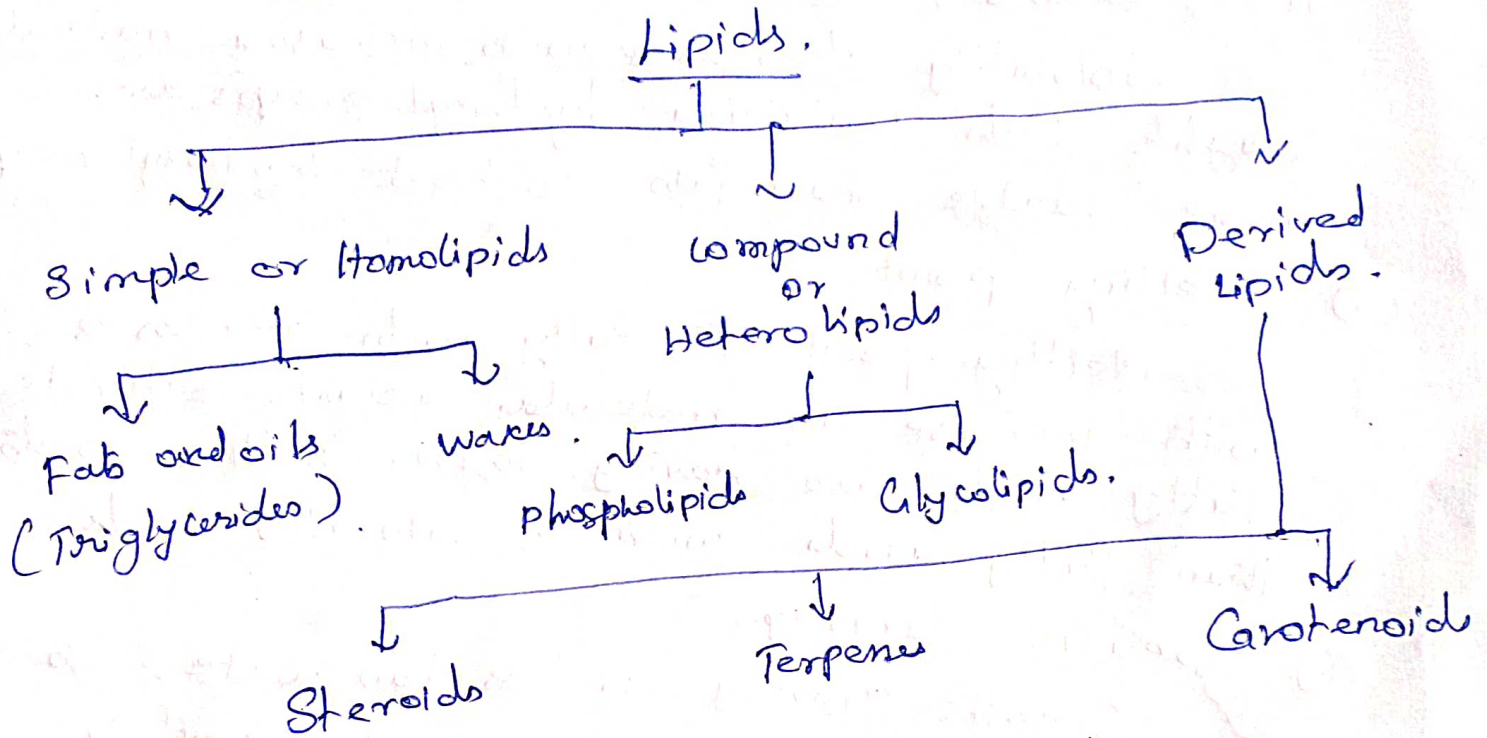 Lipids.
Simple or Homolipids
compound
or
Hetero lipids
Derived
Lipids.
Fats and oils
(Triglycerides).
waxes.
phospholipids
Glycolipids.
Steroids
Terpenes
Carotenoids